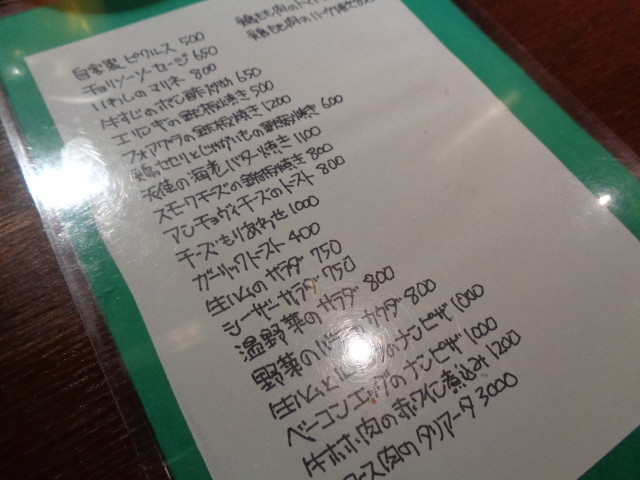 自家製 ピクルス 500
チョリソーソーセージ 650
いわしのマリネ 800
牛すじのポン酢 650
エリンギの鉄板焼き 500
フォアグラの鉄板焼き 1200
鶏セセリとじゃがいもの鉄板焼き 600
天使の海老バター焼き 1100
スモークチーズの鉄板焼き 800
アンチョヴィチーズのトースト 800
チーズもりあわせ 1000
ガーリックトースト 400
生ハムのサラダ 750
シーザーサラダ 750
温野菜のサラダ 800
野菜のバーニャカウダ 800
生ハムと のナンピザ 1000
ベーコンエッグのナンピザ 1000
牛ホホ肉の赤ワイン煮込み 1200
ロース肉のタリアータ 3000
鶏もも肉の
鶏もも肉のハーブ焼き